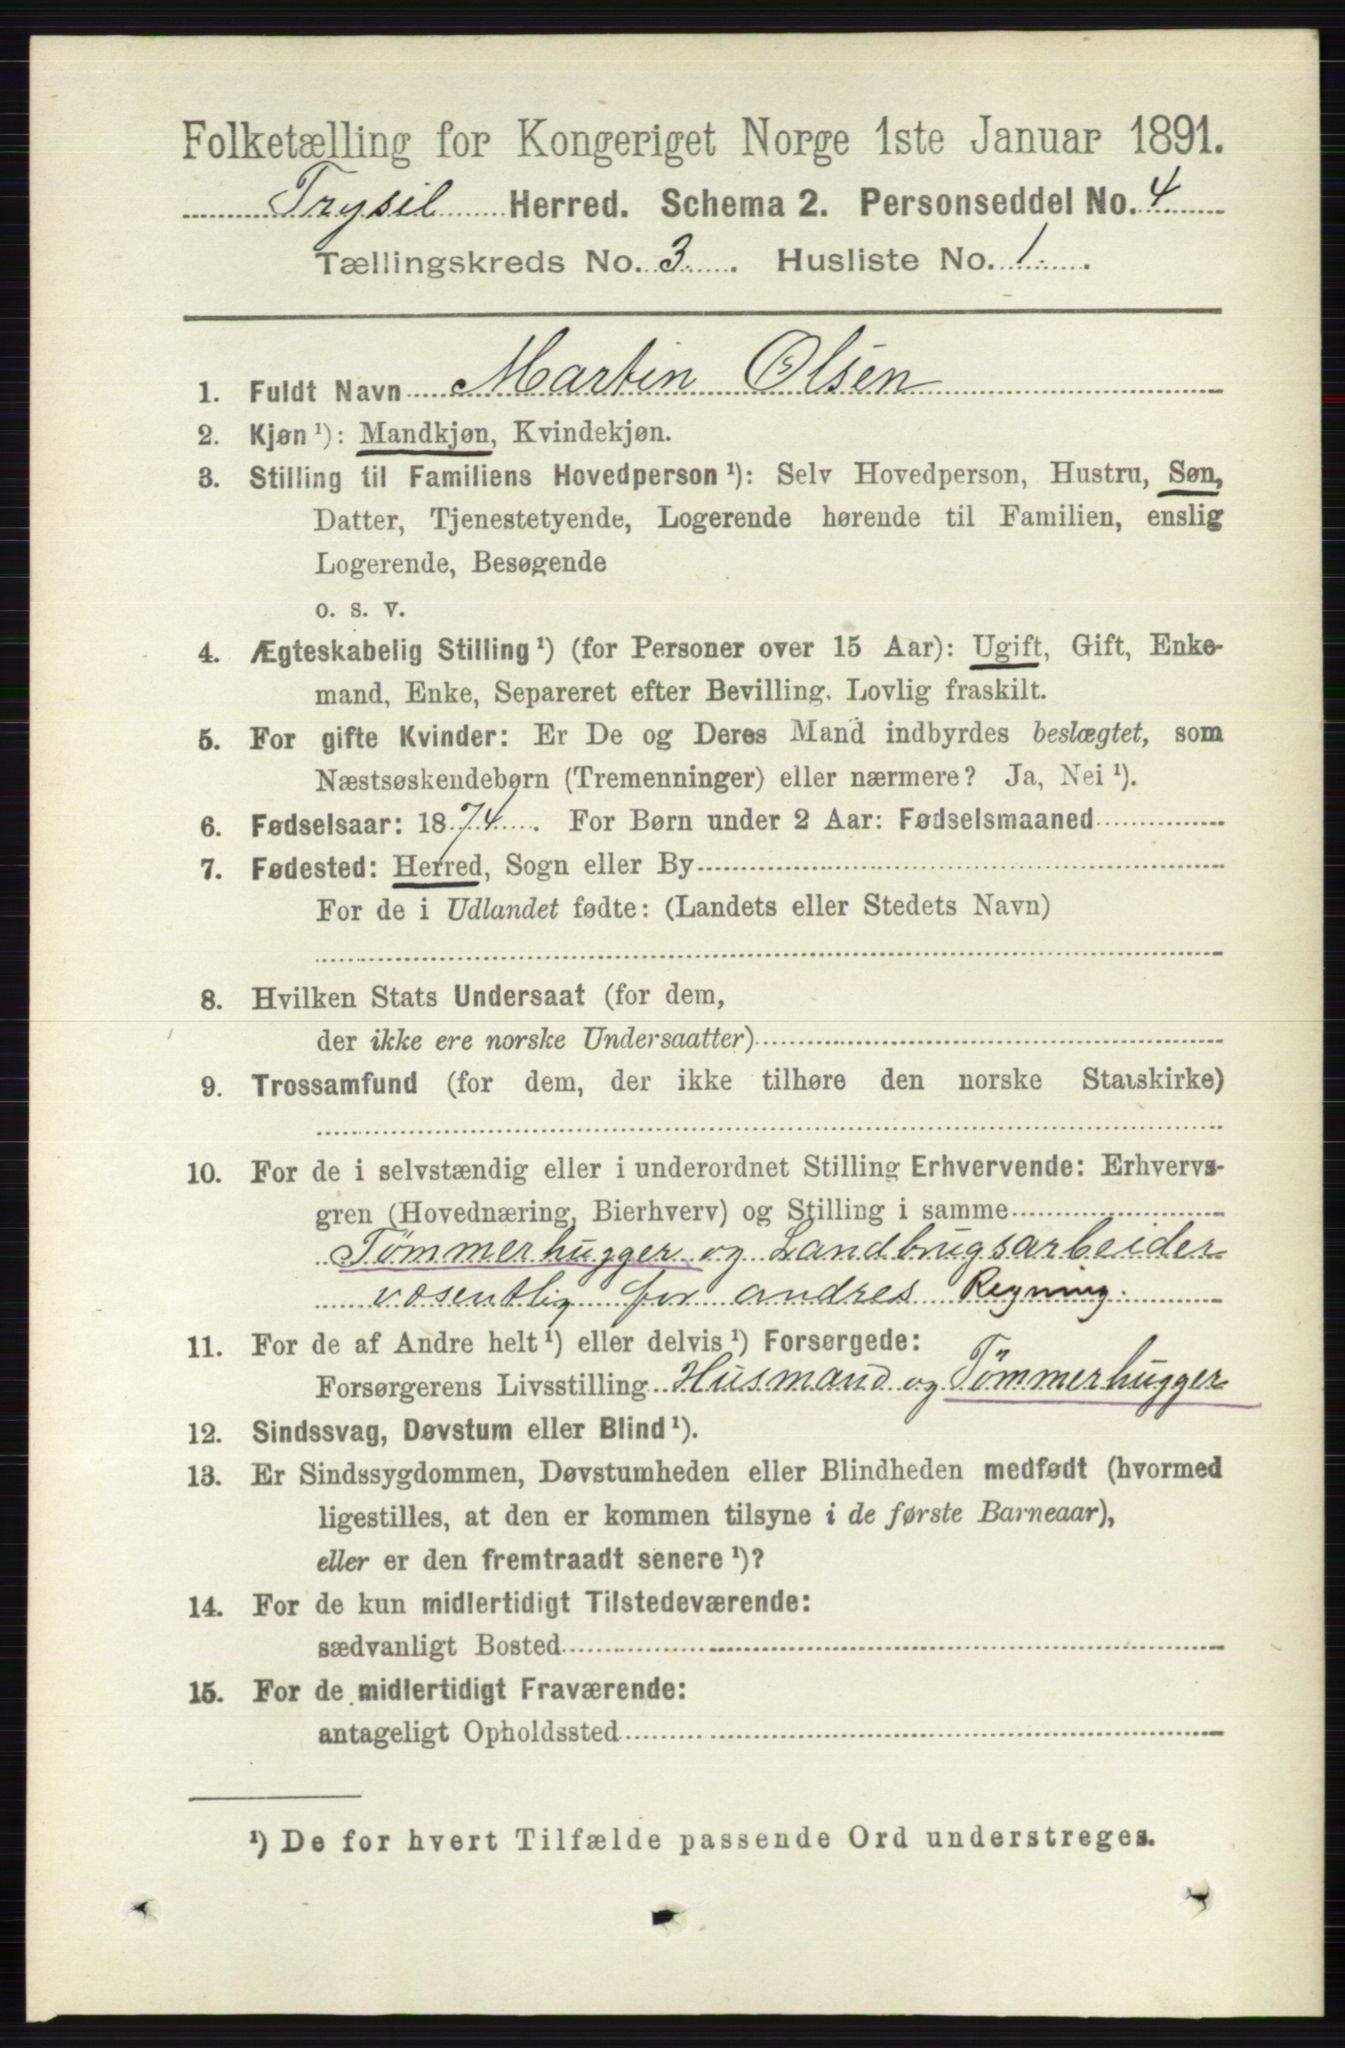 Folketælling for Kongeriget Norge 1ste Januar 1891.
Trysil Herred. Schema 2. Personseddel No. 4
Tællingskreds No. 3. Husliste No. 1.
1. Fuldt Navn Martin Olsen
2. Kjøn ¹): Mandkjøn, Kvindekjøn.
3. Stilling til Familiens Hovedperson ¹): Selv Hovedperson, Hustru, Søn,
Datter, Tjenestetyende, Logerende hørende til Familien, enslig
Logerende, Besøgende
o. s. v.
4. Ægteskabelig Stilling ¹) (for Personer over 15 Aar): Ugift, Gift, Enke-
mand, Enke, Separeret efter Bevilling. Lovlig fraskilt.
5. For gifte Kvinder: Er De og Deres Mand indbyrdes beslægtet, som
Næstsøskendebørn (Tremenninger) eller nærmere? Ja, Nei ¹).
6. Fødselsaar: 1874. For Børn under 2 Aar: Fødselsmaaned
7. Fødested: Herred, Sogn eller By
For de i Udlandet fødte: (Landets eller Stedets Navn)
8. Hvilken Stats Undersaat (for dem,
der ikke ere norske Undersaatter)
9. Trossamfund (for dem, der ikke tilhøre den norske Statskirke)
10. For de i selvstændig eller i underordnet Stilling Erhvervende: Erhvervs-
gren (Hovednæring, Bierhverv) og Stilling i samme
Tömmerhugger og Landbrugsarbeider
væsentlig for andres Regning.
11. For de af Andre helt ¹) eller delvis ¹) Forsørgede:
Forsørgerens Livsstilling Husmand og Tömmerhugger
12. Sindssvag, Døvstum eller Blind ¹).
13. Er Sindssygdommen, Døvstumheden eller Blindheden medfødt (hvormed
ligestilles, at den er kommen tilsyne i de første Barneaar),
eller er den fremtraadt senere ¹)?
14. For de kun midlertidigt Tilstedeværende:
sædvanligt Bosted
15. For de midlertidigt Fraværende:
antageligt Opholdssted
¹) De for hvert Tilfælde passende Ord understreges.